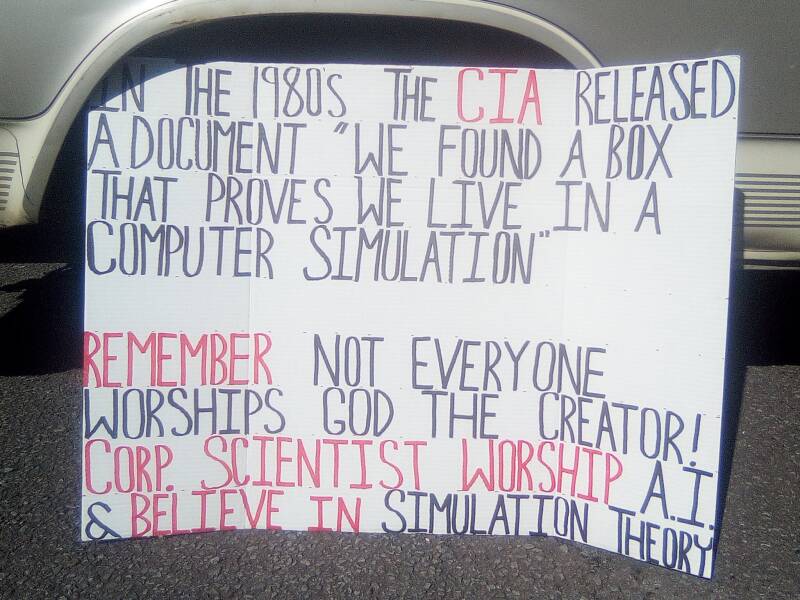 IN THE 1980'S THE CIA RELEASED
A DOCUMENT "WE FOUND A BOX
THAT PROVES WE LIVE IN A
COMPUTER SIMULATION"
REMEMBER NOT EVERYONE
WORSHIPS GOD THE CREATOR!
CORP. SCIENTIST WORSHIP A.I.
& BELIEVE IN SIMULATION THEORY